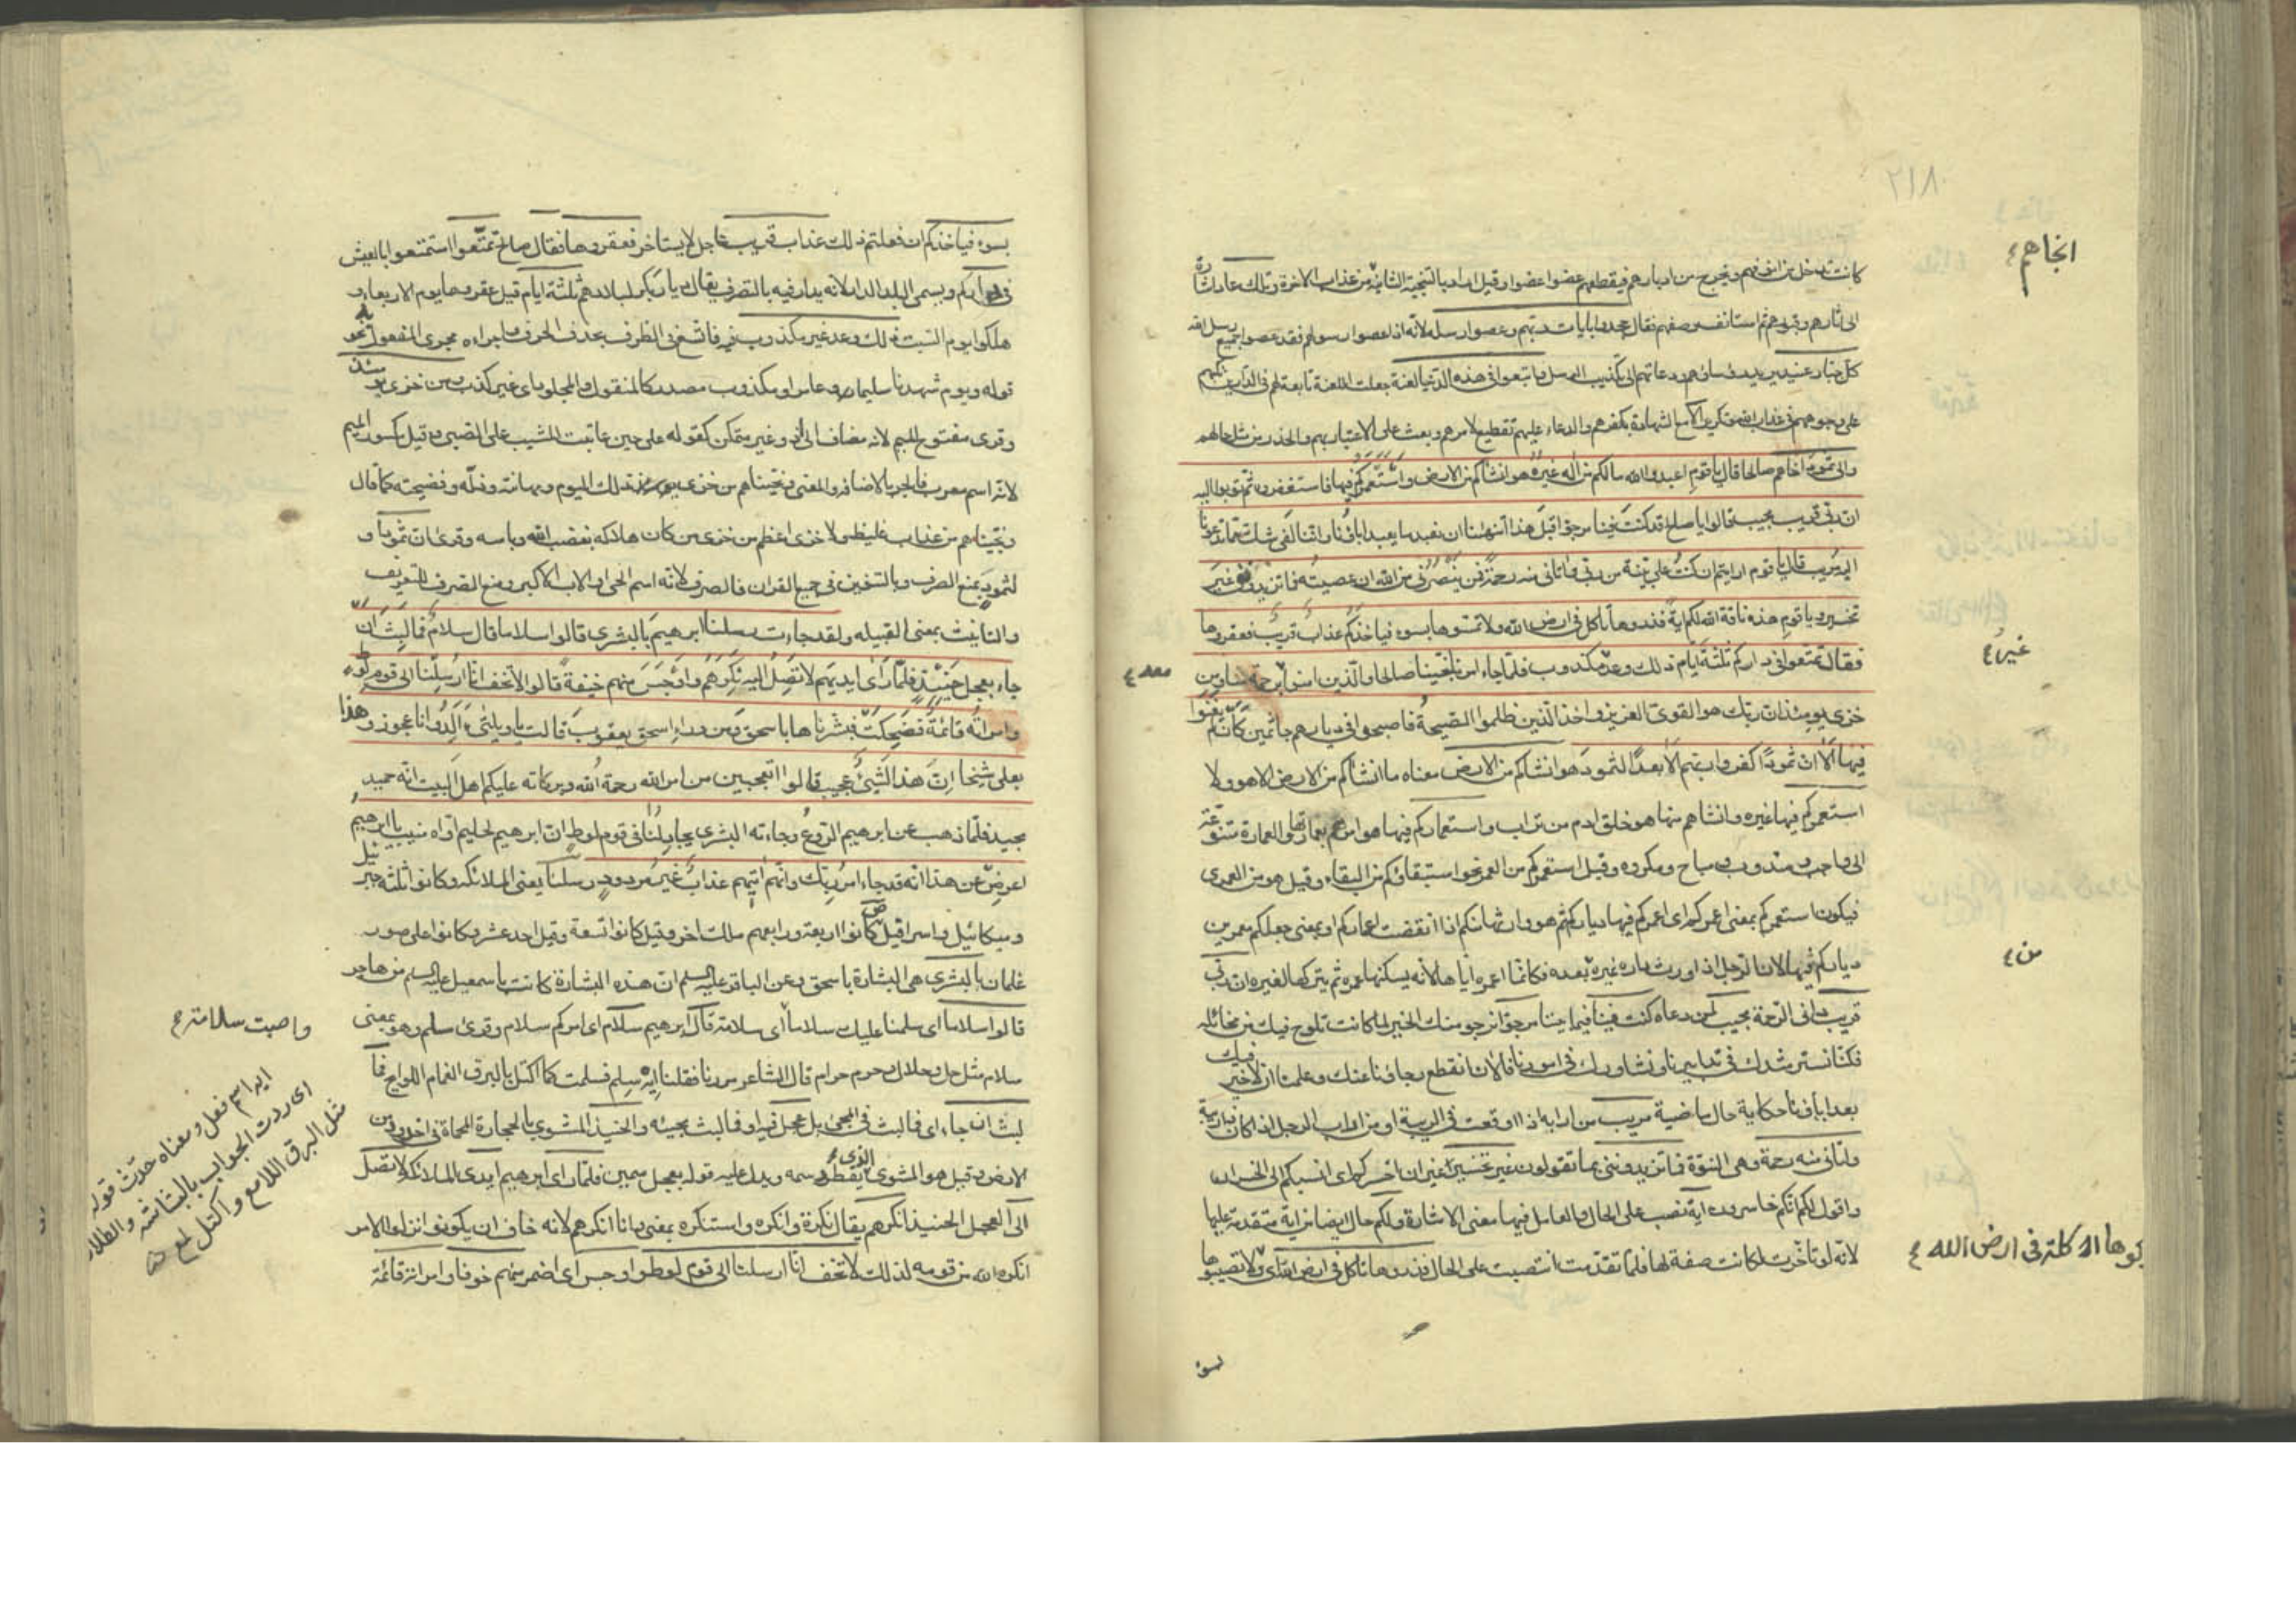 ٢١٨
كانت تدخل من انوفهم وتخرج من ادبارهم فيقطعهم عضوا عضوا وقيل اراد بالتنجية الثانية من عذاب الاخرة وتلك عاد اشارة
الى اثارهم وقبورهم ثم استانف وصفهم فقال جحدوا بايات ربهم وعصوا رسله لانه اذا عصوا رسولهم فقد عصوا جميع رسل الله
كل جبار عنيد يريد رؤساءهم ودعاتهم الى تكذيب الرسل واتبعوا فى هذه الدنيا لعنة جعلت اللعنة تابعة لهم فى الدارين تكبهم
على وجوههم فى عذاب الله وتكرير الا مع الشهادة بكفرهم والدعاء عليهم تفظيع لامرهم وبعث على الاعتبار بهم والحذر من مثل حالهم
والى ثمود اخاهم صالحا قال يا قوم اعبدوا الله مالكم من اله غيره هو انشاكم من الارض واستعمركم فيها فاستغفروه ثم توبوا اليه
ان ربى قريب مجيب قالوا يا صلح قد كنت فينا مرجوا قبل هذا اتنهينا ان نعبد ما يعبد اباؤنا واننا لفى شك مما تدعونا
اليه مريب قال يا قوم ارايتم ان كنت على بينة من ربى واتانى منه رحمة فمن ينصرنى من الله ان عصيته فما تزيدوننى غير
تخسير ويا قوم هذه ناقة الله لكم اية فذروها تاكل فى ارض الله ولا تمسوها بسوء فياخذكم عذاب قريب فعقروها
فقال تمتعوا فى داركم ثلثة ايام ذلك وعد غير مكذوب فلما جاء امرنا نجينا صالحا والذين امنوا معه برحمة منا ومن
خزى يومئذ ان ربك هو القوى العزيز واخذ الذين ظلموا الصيحة فاصبحوا فى ديارهم جاثمين كان لم يغنوا
فيها الا ان ثمودا كفروا ربهم الا بعدا لثمود هو انشاكم من الارض معناه ما انشاكم من الارض الا هو ولا
استعمركم فيها غيره وانشاهم منها هو خلق ادم من تراب واستعماركم فيها هو امرهم بعمارتها والعمارة متنوعة
الى واجب ومندوب ومباح ومكروه وقيل استعمركم من العمر نحو استبقاكم من البقاء وقيل هو من العمرى
فيكون استعمركم بمعنى اعمركم اى اعمركم فيها دياركم ثم هو وارثها منكم اذا انقضت اعماركم او بمعنى جعلكم معمرين
دياركم فيها لان الرجل اذا اورث داره غيره بعده فكانما اعمره اياها لانه يسكنها عمره ثم يتركها لغيره ان ربى
قريب دانى الرحمة مجيب لمن دعاه كنت فينا فيما بيننا مرجوا نرجو منك الخير لما كانت تلوح فيك من مخائله
فكنا نسترشدك فى تدابيرنا ونشاورك فى امورنا فالان انقطع رجاؤنا عنك وعلمنا ان لا خير فيك
يعبد اباؤنا حكاية حال ماضية مريب من ارابه اذا اوقعت فى الريبة او من اراب الرجل اذا كان ذا ريبة
واتانى منه رحمة وهى النبوة فما تزيدوننى بما تقولون غير تخسير غير ان اخسركم اى انسبكم الى الخسران
واقول لكم انكم خاسرون اية نصب على الحال والعامل فيها معنى الاشارة ولكم حال ايضا من اية متقدمة عليها
لانه لو تاخرت لكانت صفة لها فلما تقدمت انتصبت على الحال فذروها تاكل فى ارض الله اى ولا تصيبوها
بسوء
انجاهم
غيره
معه
من
كوها اكلة فى ارض الله
بسوء فياخذكم ان فعلتم ذلك عذاب قريب عاجل لا يستاخر فعقروها فقال صالح تمتعوا استمتعوا بالعيش
فى داركم ويسمى البلد الدار لانه يدار فيه بالتصرف يقال ديار بكر لبلادهم ثلثة ايام قيل عقروها يوم الاربعاء و
هلكوا يوم السبت ذلك وعد غير مكذوب فيه فاتسع فى الظرف بحذف الحرف واجراءه مجرى المفعول به نحو
قوله ويوم شهدنا سليما وعامرا ومكذوب مصدر كالمنقول والمجلود اى غير كذب ومن خزى يومئذ
وقرى مفتوح الميم لانه مضاف الى اذ وغير متمكن كقوله على حين عاتبت المشيب على الصبى وقيل مكسور الميم
لانه اسم معرب فانجر بالاضافة والمعنى ونجيناهم من خزى ذلك اليوم ومهانته وذله وفضيحته كما قال
ونجيناهم من عذاب غليظ ولا خزى اعظم من خزى من كان هلاكه بغضب الله وباسه وقرى ان ثمود و
لثمود بمنع الصرف وبالتنوين فى جميع القران فالصرف لانه اسم الحى او الاب الاكبر ومنع الصرف للتعريف
والتانيث بمعنى القبيله ولقد جاءت رسلنا ابرهيم بالبشرى قالوا سلاما قال سلام فما لبث ان
جاء بعجل حنيذ فلما راى ايديهم لا تصل اليه نكرهم واوجس منهم خيفة قالوا لا تخف انا ارسلنا الى قوم لوط
وامراته قائمة فضحكت فبشرناها باسحق ومن وراء اسحق يعقوب قالت يا ويلتى ءالد وانا عجوز وهذا
بعلى شيخا ان هذا لشيئ عجيب قالوا اتعجبين من امر الله رحمة الله وبركاته عليكم اهل البيت انه حميد
مجيد فلما ذهب عن ابرهيم الروع وجاءته البشرى يجادلنا فى قوم لوط ان ابرهيم لحليم اواه منيب يا ابرهيم
اعرض عن هذا انه قد جاء امر ربك وانهم اتيهم عذاب غير مردود رسلنا يعنى الملائكة وكانوا ثلثة جبرئيل
وميكائيل واسرافيل كانوا اربعة ورابعهم ملك اخر وقيل كانوا تسعة وقيل احد عشر وكانوا على صور
غلمان بالبشرى هى البشارة باسحق وعن الباقر عليه السلم ان هذه البشارة كانت باسمعيل عليه السلم من هاجر
قالوا سلاما اى سلمنا عليك سلاما اى سلامة قال ابرهيم سلام اى امركم سلام وقرى سلم وهو بمعنى
سلام مثل حل وحلال وحرم وحرام قال الشاعر مررنا فقلنا ايه سلم فسلمت كما اكتل بالبرق الغمام اللوائح فما
لبث ان جاء اى فما لبث فى المجئ بل عجل فيه او فما لبث مجيئه والحنيذ المشوى بالحجارة المحماة فى اخدود من
الارض وقيل هو المشوى الذى يقطر دسمه ويدل عليه قوله بعجل سمين فلما راى ابرهيم ايدى الملائكة لا تصل
الى العجل الحنيذ انكرهم يقال نكره وانكره واستنكره بمعنى وانما انكرهم لانه خاف ان يكونوا نزلوا لامر
انكره الله من قومه لذلك لا تخف انا ارسلنا الى قوم لوط واوجس اى اضمر منهم خوفا وامراته قائمة
واصبت سلامة
ايه اسم فعل ومعناه حدث قوله
اى ردت الجواب بالبشاشة
مثل البرق اللامع واكتل لمع